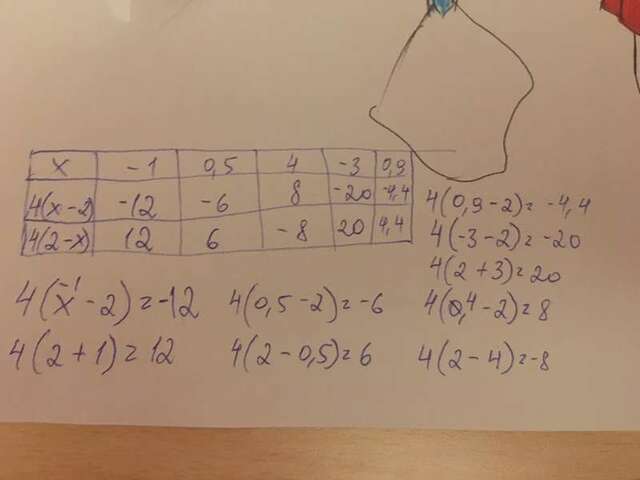 x -1 0,5 4 -3 0,9
4(x-2) -12 -6 8 -20 -4,4
4(2-x) 12 6 -8 20 4,4
4(0,9-2)=-4,4
4(-3-2)=-20
4(2+3)=20
4(-1-2)=-12 4(0,5-2)=-6 4(4-2)=8
4(2+1)=12 4(2-0,5)=6 4(2-4)=-8